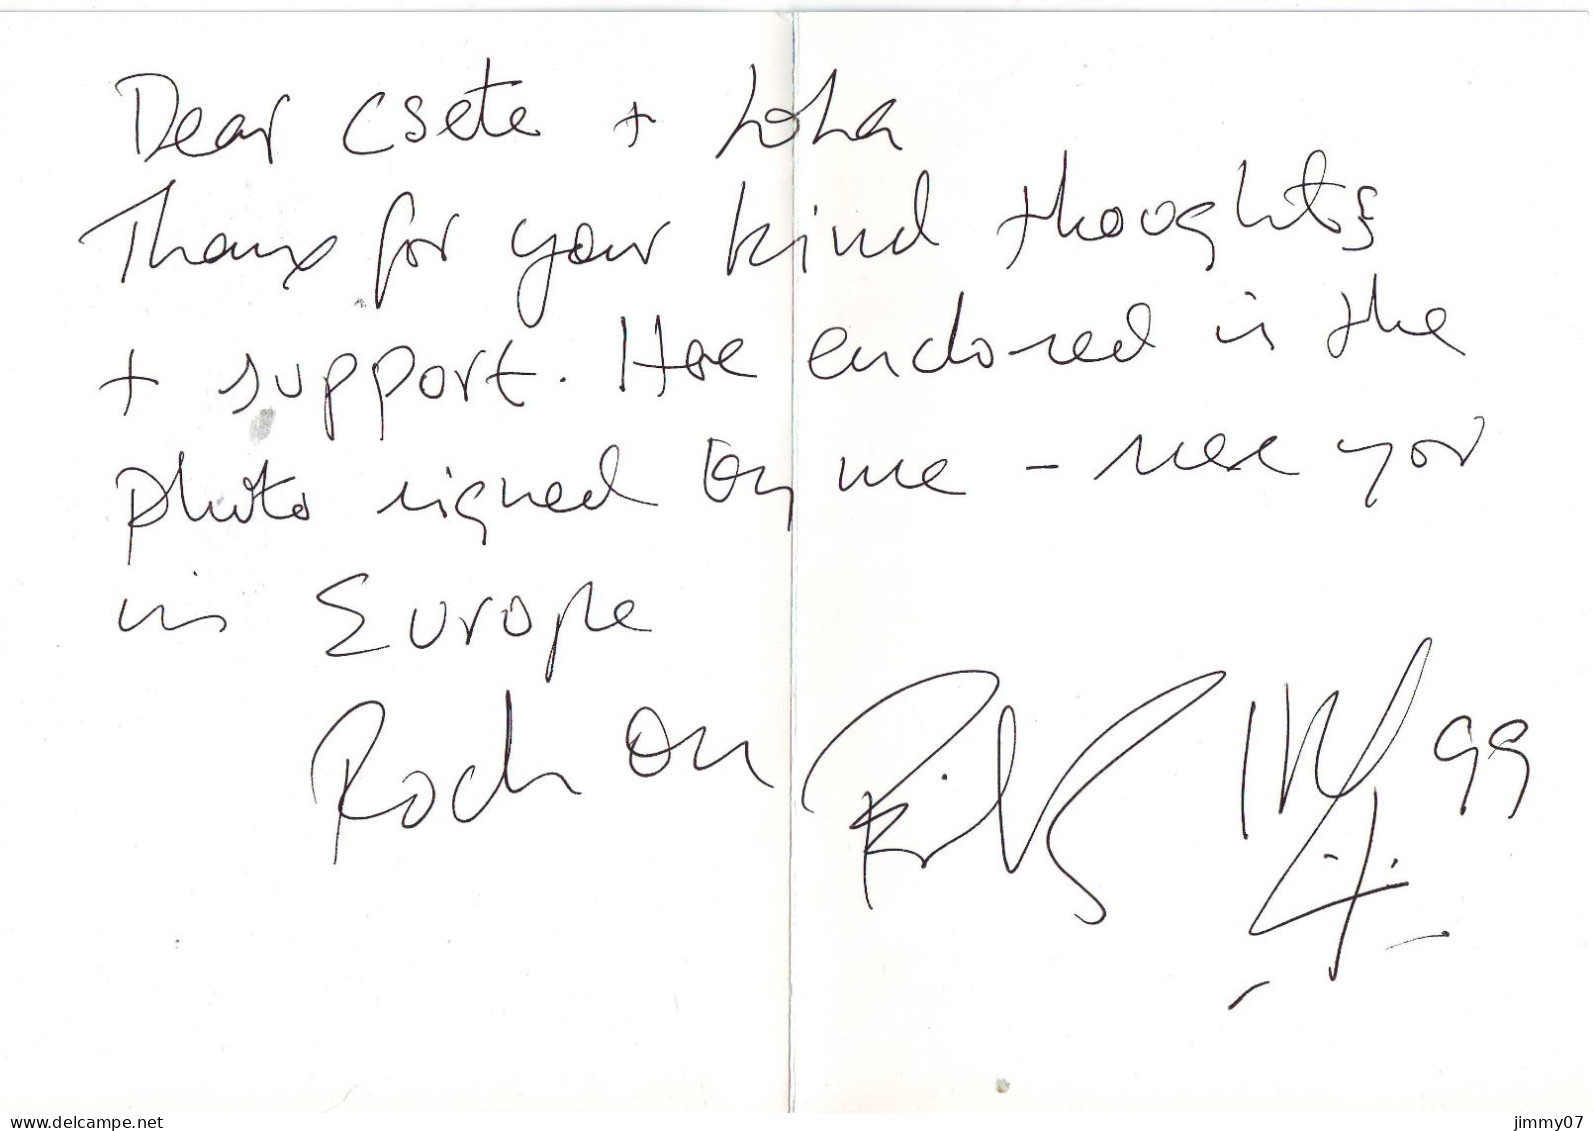 Dear Csete +
Thanx for your kind thoughts
+ support. Here enclosed is the
photo signed by me - see you
in Europe
Rock on
99
www.delcampe.net
jimmy07